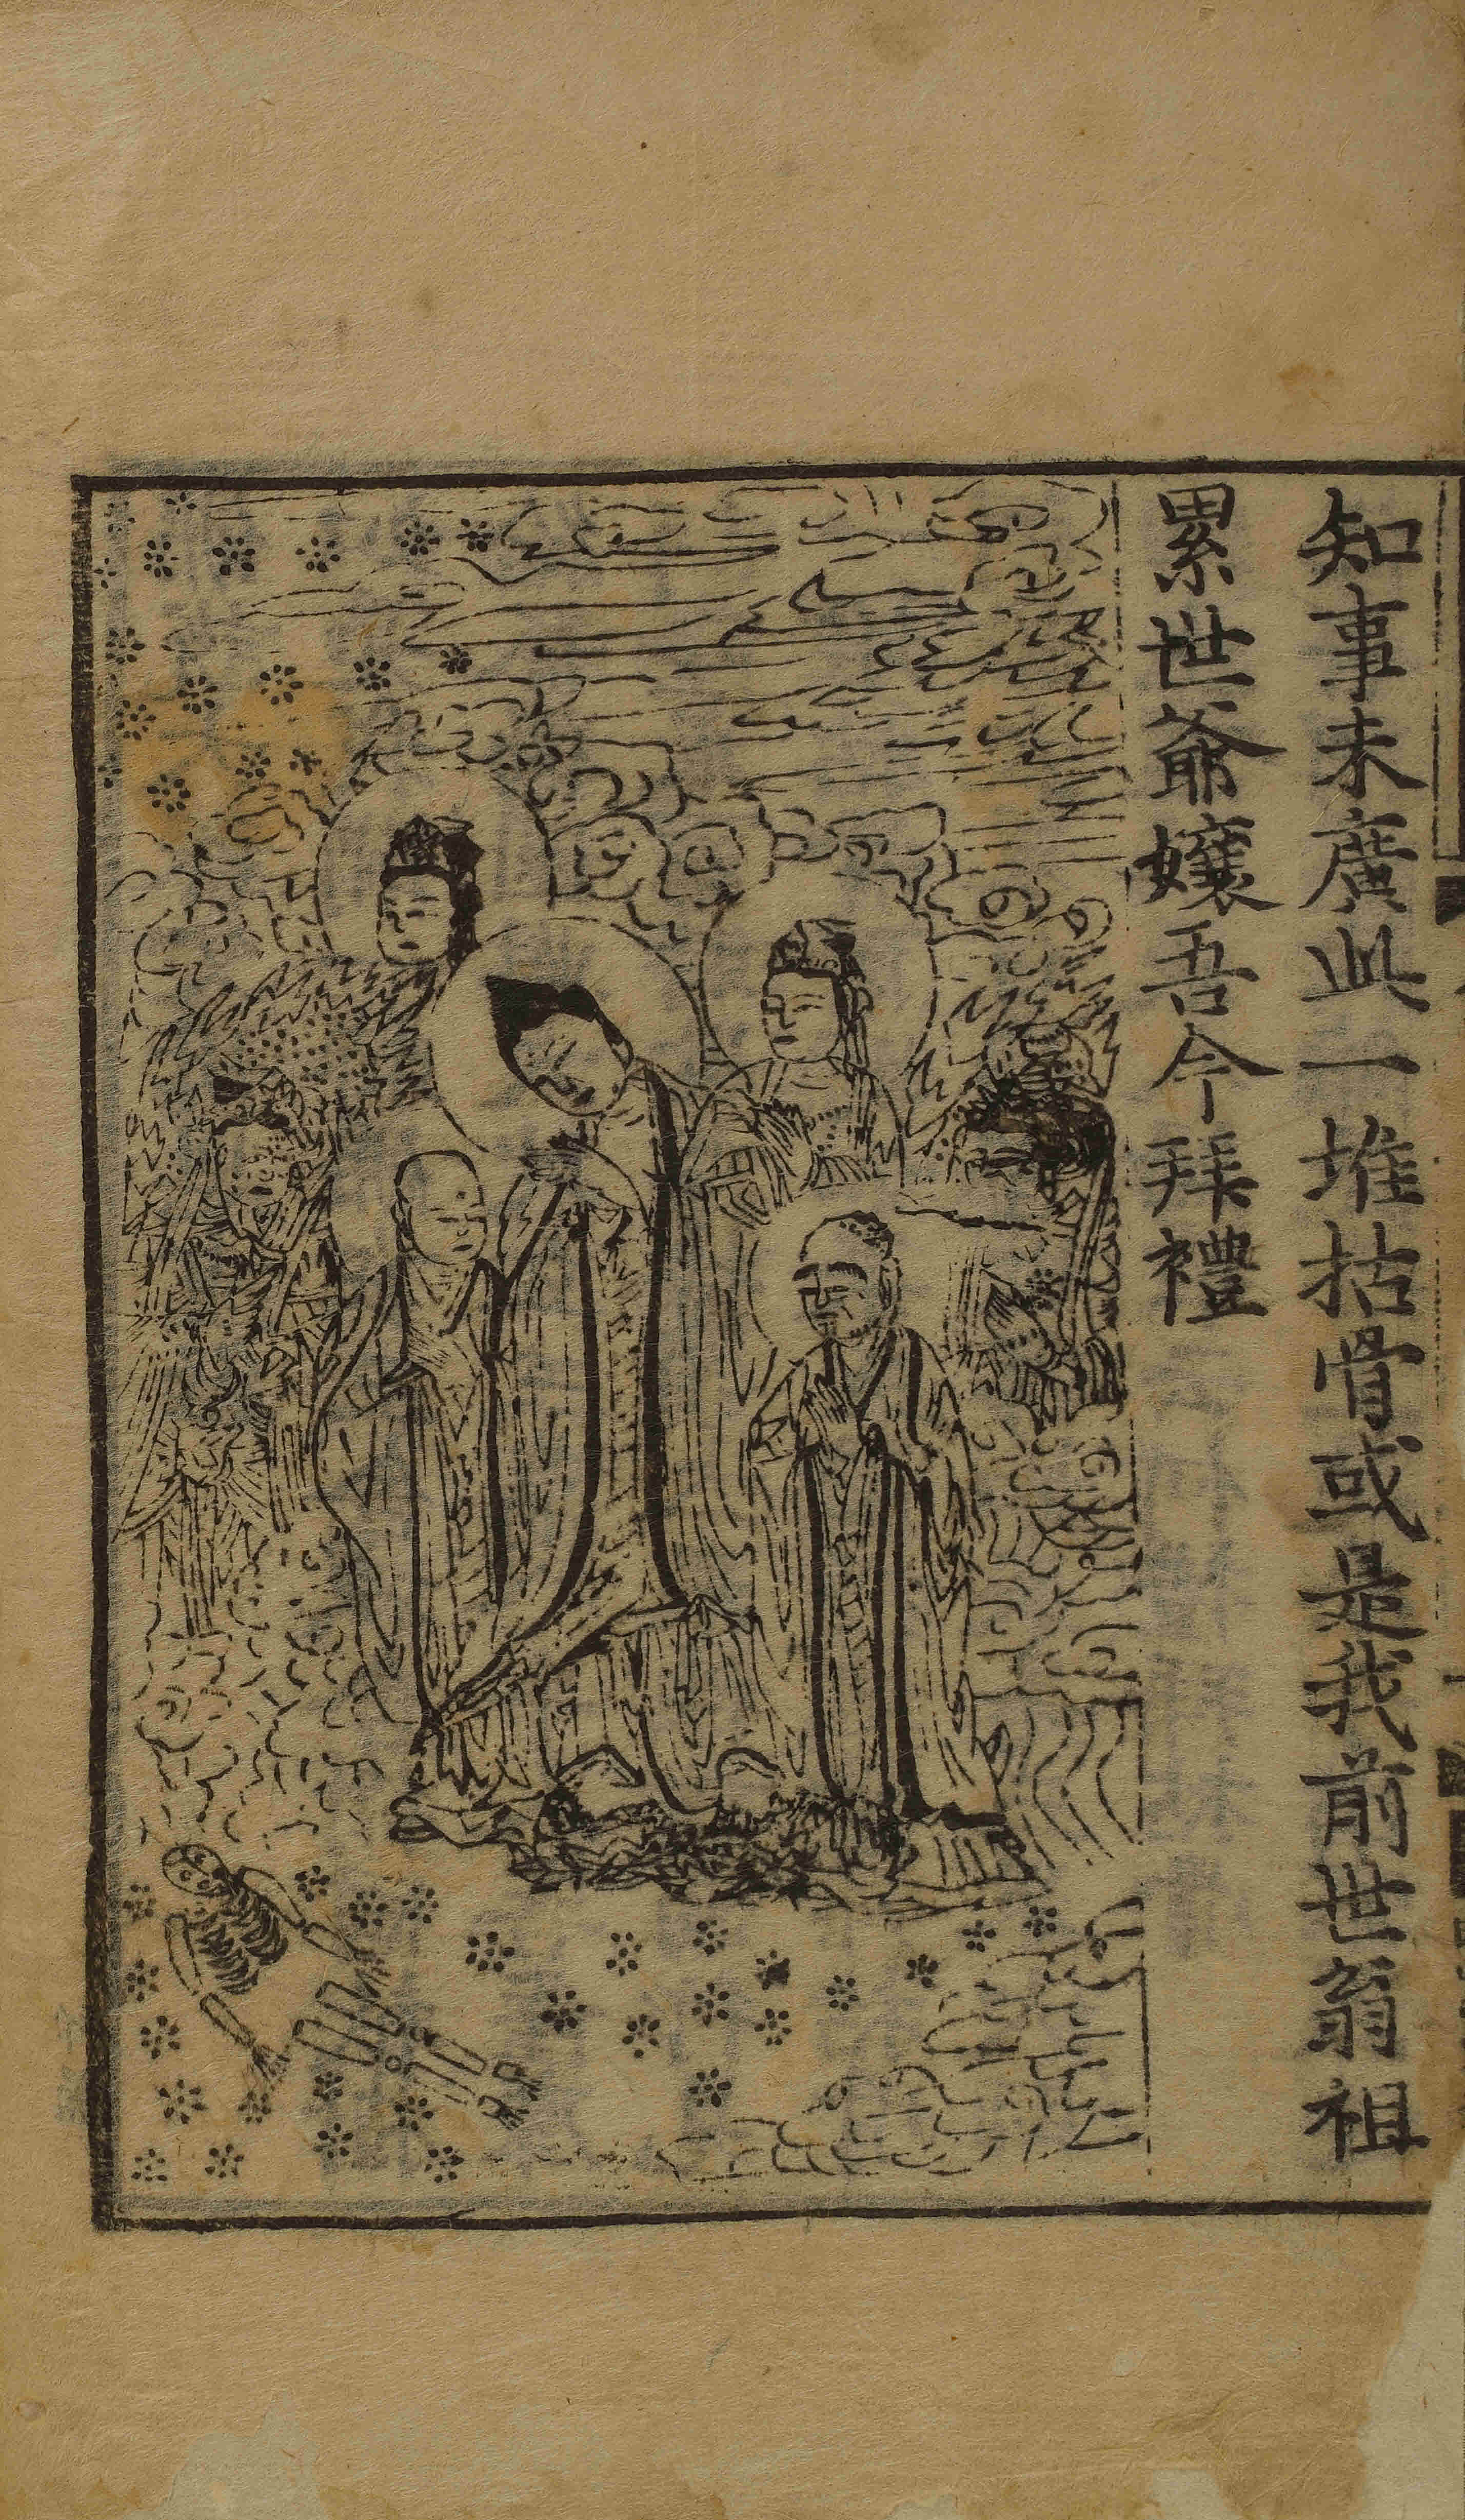 知事未廣此一堆拈骨或是我前世翁祖
累世爺孃吾今拜禮